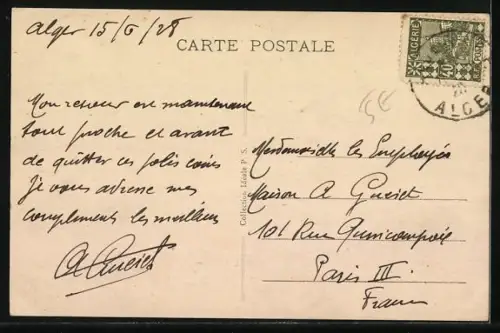 Alger 15/6/28
CARTE POSTALE
ALGÉRIE
ALGER
Mon retour est maintenant
tout proche et avant
de quitter ces jolis coins
je vous adresse mes
compliments les meilleurs
A Gueriet
Collection Idéale P. S.
Mesdemoiselles les Employées
Maison A Gueriet
101 Rue Quincampoix
Paris III
France